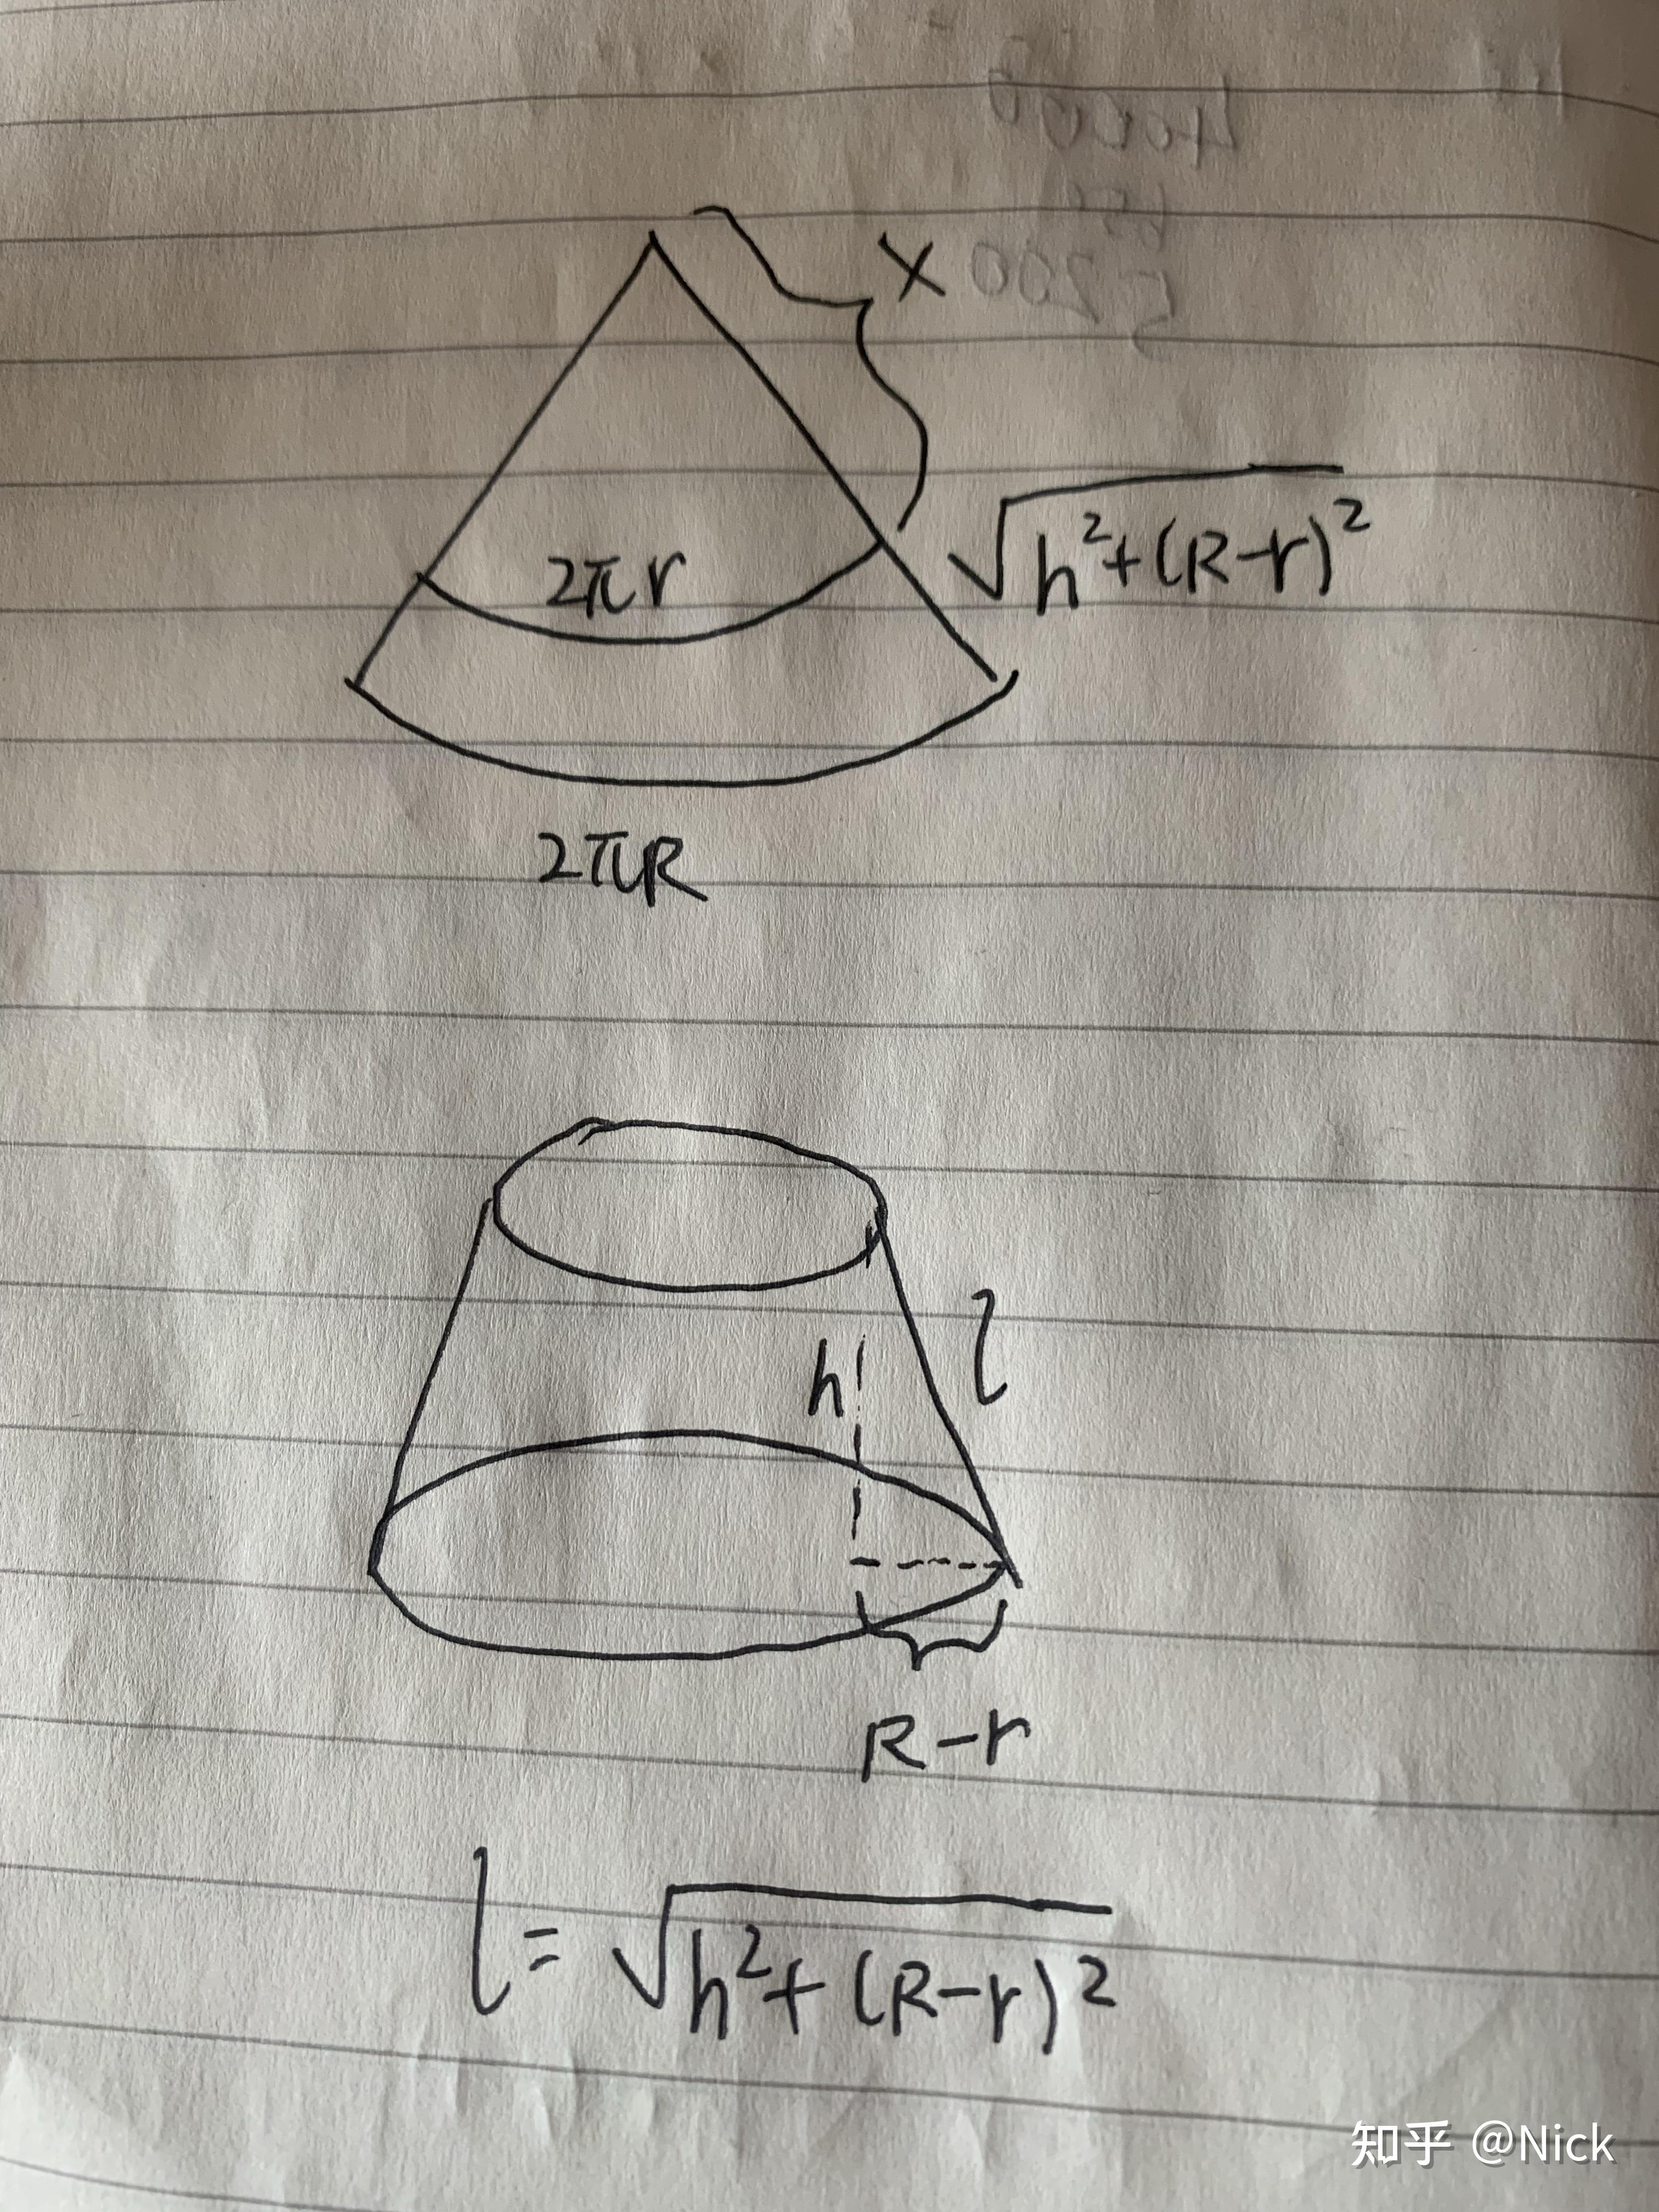 X
√(h²+(R-r)²)
2πr
2πR
h
l
R-r
l = √(h²+(R-r)²)
知乎 @Nick